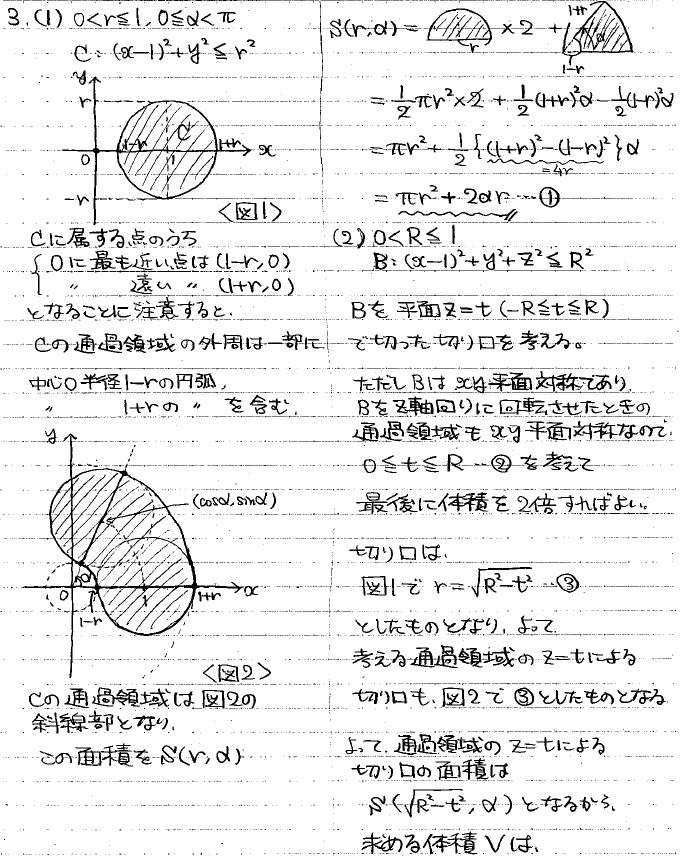 3. (1) 0<r≦1, 0≦α<π
C: (x-1)²+y²≦r²
y
r
C
0
1-r
1
1+r
x
-r
<図1>
Cに属する点のうち
{ 0に最も近い点は (1-r, 0)
〃 遠い 〃 (1+r, 0)
となることに注意すると、
Cの通過領域の外周は一部に
中心0半径1-rの円弧,
〃 1+rの 〃 を含む。
y
(cosα, sinα)
α
0
1
1+r
x
1-r
<図2>
Cの通過領域は図2の
斜線部となり、
この面積をS(r, α)
S(r, α) = r ×2 + 1+r α 1-r
= 1/2 πr²×2 + 1/2 (1+r)²α - 1/2 (1-r)²α
= πr² + 1/2 {(1+r)² - (1-r)²}α
=4r
= πr² + 2αr …①
(2) 0<R≦1
B: (x-1)²+y²+z²≦R²
Bを平面z=t (-R≦t≦R)
で切った切り口を考える。
ただしBはxy平面対称であり、
Bをz軸回りに回転させたときの
通過領域もxy平面対称なので、
0≦t≦R …② を考えて
最後に体積を2倍すればよい。
切り口は、
図1で r=√(R²-t²) …③
としたものとなり, よって
考える通過領域のz=tによる
切り口も、図2で③としたものとなる
よって、通過領域のz=tによる
切り口の面積は
S(√(R²-t²), α) となるから、
求める体積Vは、